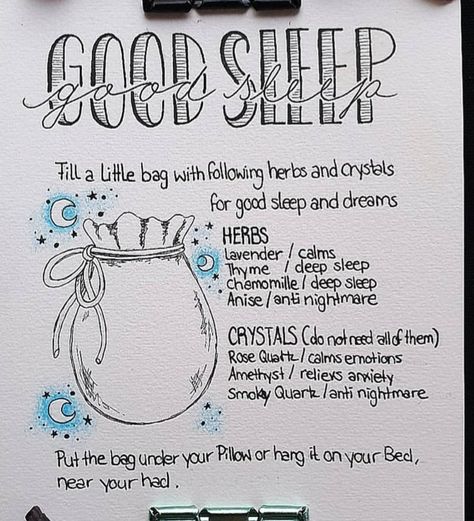 GOOD SLEEP
good sleep
Fill a Little bag with following herbs and Crystals
for good sleep and dreams
HERBS
Lavender / calms
Thyme / deep sleep
Chamomille / deep sleep
Anise / anti nightmare
CRYSTALS (do not need all of them)
Rose Quartz / calms emotions
Amethyst / relievs anxiety
Smoky Quartz / anti nightmare
Put the bag under your Pillow or hang it on your Bed,
near your had.